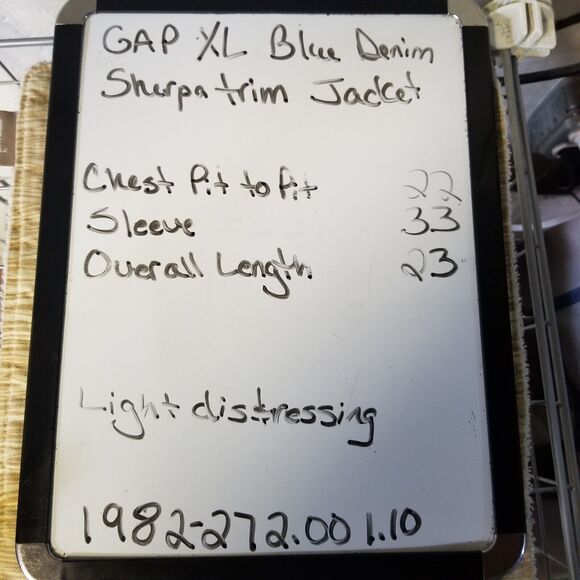 GAP XL Blue Denim
Sherpa trim Jacket
Chest Pit to Pit 22
Sleeve 33
Overall Length 23
Light distressing
1982-272.001.10